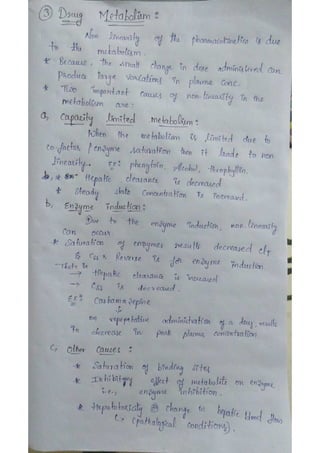 ③ Drug Metabolism :
Non linearity of the pharmacokinetics is due
to the metabolism.
* Because, the small change in dose administered can
produce large variations in plasma conc.
* Two important causes of non-linearity in the
metabolism are :
a, Capacity limited metabolism :
When the metabolism is limited due to
co-factor / enzyme saturation then it leads to non
linearity. Ex: phenytoin, Alcohol, theophyllin.
* Hepatic clearance is decreased
* Steady state concentration is increased.
b, Enzyme induction :
Due to the enzyme induction, non-linearity
can occur.
* Saturation of enzymes results decreased
& Css * Reverse is for enzyme induction
that is
→ Hepatic clearance is increased
→ Css is decreased.
Ex: Carbamazepine
↓
on repepetative administration of a drug, results
in decrease in peak plasma concentration
c, Other Causes :
* Saturation of binding sites
* Inhibitory effect of metabolite on enzyme
i.e., enzyme inhibition.
* Hepatotoxicity change in hepatic blood flow
↳ (pathological conditions).